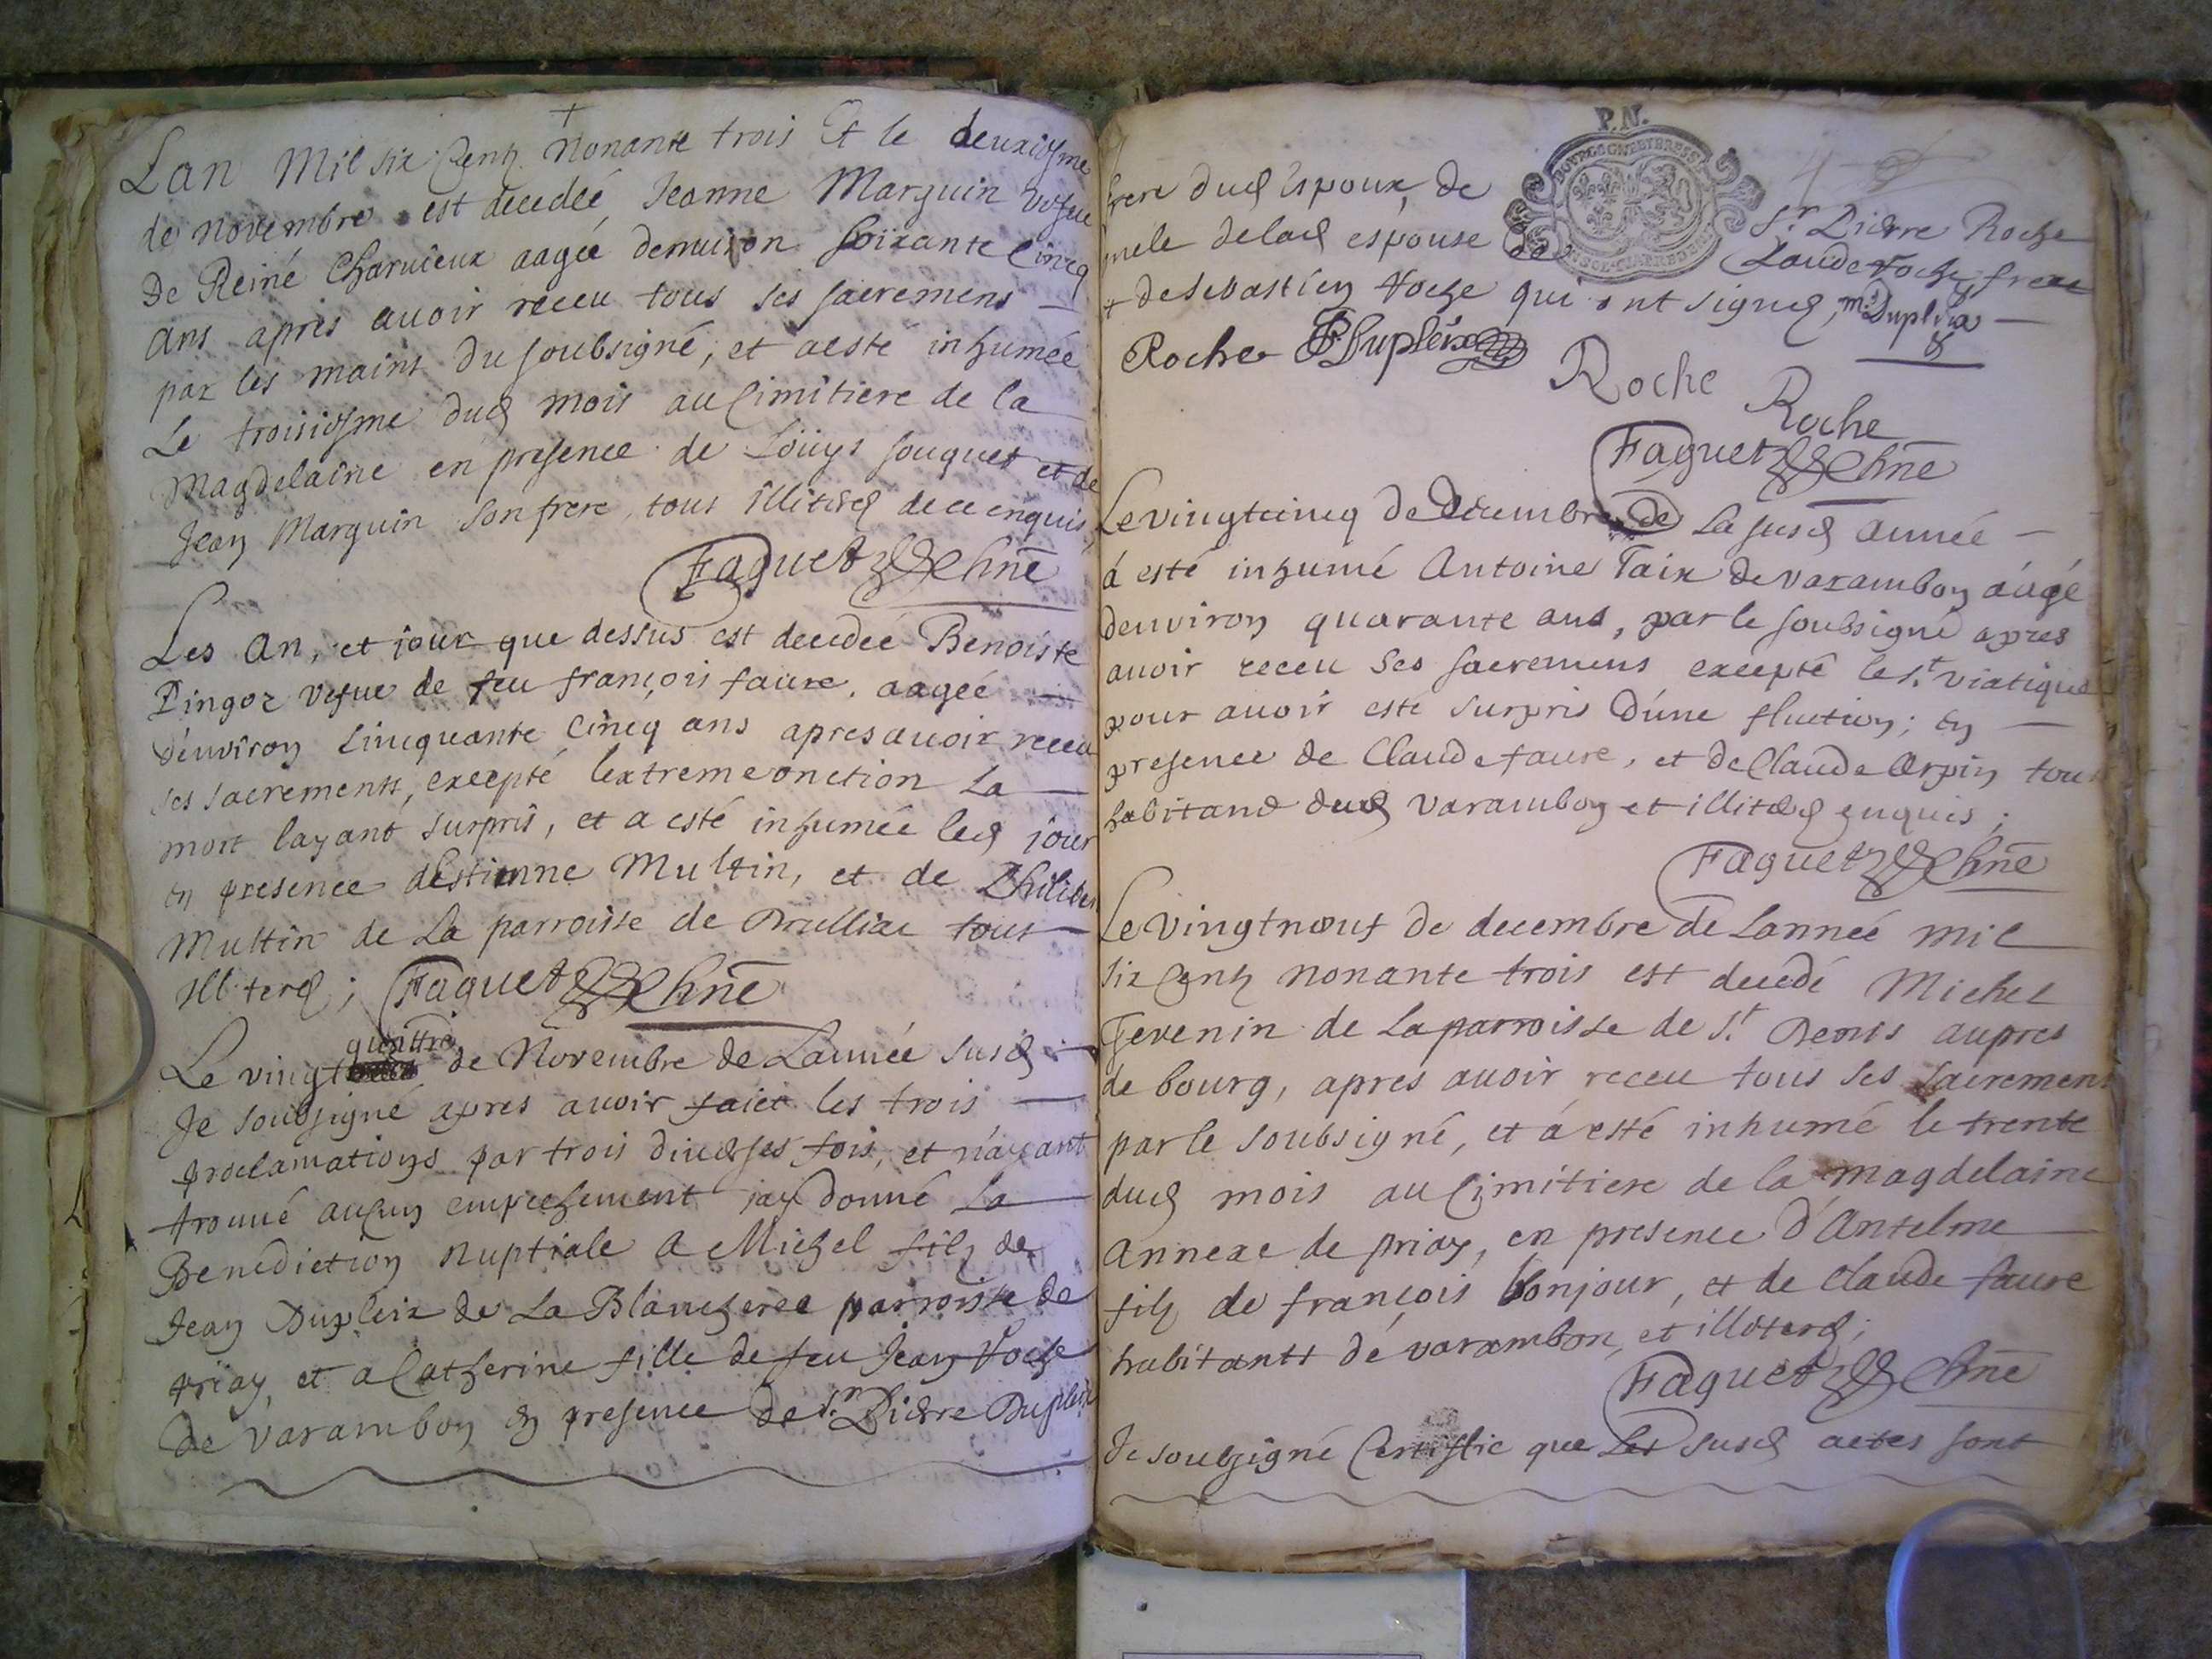 +
Lan Mil six Centz Nonante trois Et le deuxiesme
de novembre est decedée Jeanne Marguin vefue
De Reiné Charuieux aagée denuiron soixante Cincq
ans apres auoir receu tous ses sacremens
par les mains du soubsigné, et a esté inhumée
Le troisiesme dud mois au Cimitiere de la
Magdelaine en presence de Loüys fouquet et de
Jean Marguin son frere, tous illiterd de ce enquis,
Faguet Chne
Les An, et jour que dessus est decedée Benoiste
Pingoz vefue de feu françois faure, aagée
d'enuiron Cincquante Cincq ans apres auoir receu
ses sacrements, excepté lextreme onction La
mort layant surpris, et a esté inhumée led jour
en presence dEstienne Multin, et de Philiber
Multin de La parroisse de Druilliac tous
illiterd; Faguet Chne
quattre
Le vingt de Novembre de Lannée susd
Je soubsigné apres auoir faict les trois
proclamations par trois diuerses fois, et n'ayant
trouué aucun empechement jay donné La
Benediction Nuptiale a Michel filz de
Jean Dupleix de La Blancherée parroisse de
priay et a Catherine fille de feu Jean Roche
De varambon En presence de Sr Pierre Dupleix
frere dud Espoux, de Sr Pierre Roche
de lad espouse de Claude roche frere
+ de Sebastien Roche qui ont signed, m Dupleix
Roche P Dupleix
Roche
Roche
Faguet Chne
Le vingtcincq de Decembre de La susd année
á esté inhumé Antoine Taix de varambon áagé
denuiron quarante ans, par le soubsigné apres
auoir receu ses sacremens excepté le St viatique
pour auoir esté surpris d'une fluction; En
presence de Claude faure, et de Claude Arpin tous
habitans dud varambon et illiterd enquis;
Faguet Chne
Le vingtneuf de decembre de Lannée mil
six Centz nonante trois est decedé Michel
Tevenin de La parroisse de St Denis aupres
de bourg, apres auoir receu tous ses sacremens
par le soubsigné, et á esté inhumé le trente
dud mois au Cimitiere de la Magdelaine
Annexe de priay, en presence d'Antelme
filz de françois bonjour, et de Claude faure
habitants de varambon, et illiterd;
Faguet Chne
Je soubsigné Certiffie que Les susd actes sont